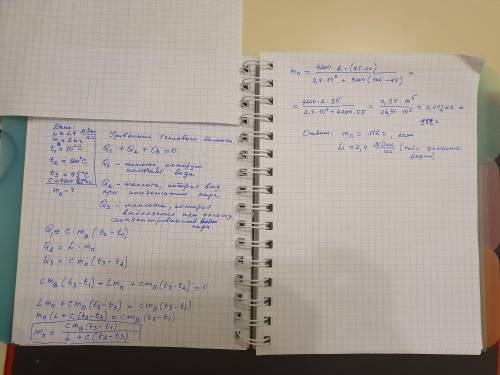 Дано
L = 2,4 МДж/кг
mв = 2 кг
t1 = 10°C
t2 = 100°C
t3 = 45°C
c = 4200
mп - ?
Уравнение теплового баланса
Q1 + Q2 + Q3 = 0
Q1 - теплота, которую получает вода
Q2 - теплота, которая
при конденсации пара
Q3 - теплота, которая
выделяется при
сконденсированного
пара
Q1 = c · mв (t3 - t1)
Q2 = L · mп
Q3 = c mп (t3 - t2)
c mв (t3 - t1) - L mп + c mп (t3 - t2) = 0
L mп + c mп (t2 - t3) = c mв (t3 - t1)
mп (L + c (t2 - t3)) = c mв (t3 - t1)
mп = c mв (t3 - t1) / L + c (t2 - t3)
mп = 4200 · 2 · (45 - 10) / 2,4 · 10⁶ + 4200 (100 - 45) =
= 4200 · 2 · 35 / 2,4 · 10⁶ + 4200 · 55 = 2,94 · 10⁵ / 26,31 · 10⁵ = 0,112 кг =
112 г
Ответ: mп = 112 г, если
L = 2,4 МДж/кг (табл. значение